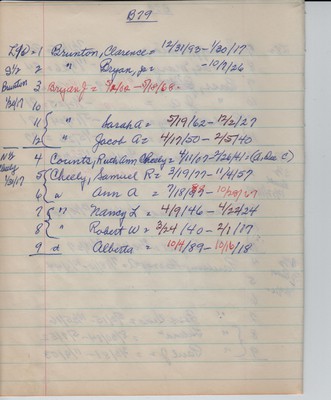 B79
Lot = 1 Brunton, Clarence = 12/31/93 - 1/20/17
S½ 2 " Bryan, Jr = -10/7/26
Brunton 3 Bryan J = - 5/10/68.
10
11 " Sarah A = 5/19/62 - 12/2/27
12 " Jacob A = 4/17/50 - 2/5/40
N½ 4 Counts, Ruth Ann Cheely =
Cheely 5 Cheely, Samuel R = 3/19/77 - 11/4/57
6 " Ann A = 7/18/88 - 10/29/67
7 " Nancy L = 4/9/46 - 4/22/24
8 " Robert W = 3/24/40 - 2/1/17
9 d Alberta = 10/4/89 - 10/16/18